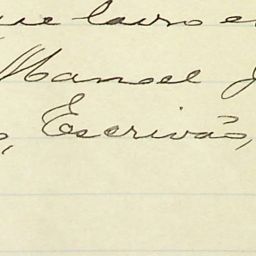 que lavro e
Manoel J
, Escrivão,